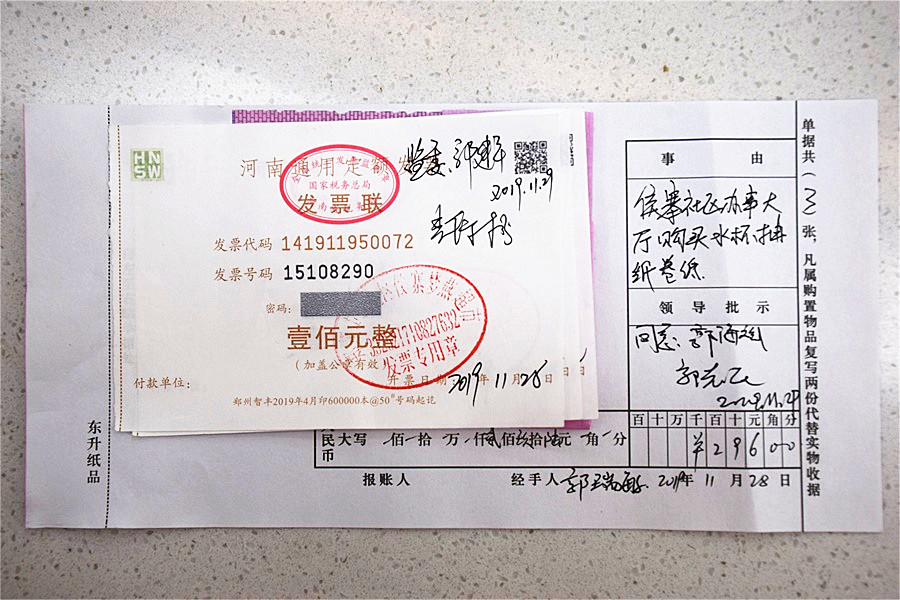 HN
SW
河南通用定额发
国家税务总局
发票联
监委:郭建军
2019.11.29
发票代码 141911950072
发票号码 15108290
密码:
壹佰元整
(加盖公章有效)
发票专用章
开票日期: 2019年 11月 28日
付款单位:
郑州智丰2019年4月印600000本@50#号码起讫
东升纸品
事由
侯寨社区办事大
厅购买水杯抽
纸卷纸.
领导批示
同意:
2019.11.29
百十万千百十元角分
¥29600
民大写 佰 拾 万 仟贰佰玖拾陆元 角 分
币
报账人
经手人 2019年 11月 28日
单据共(三)张,凡属购置物品复写两份代替实物收据